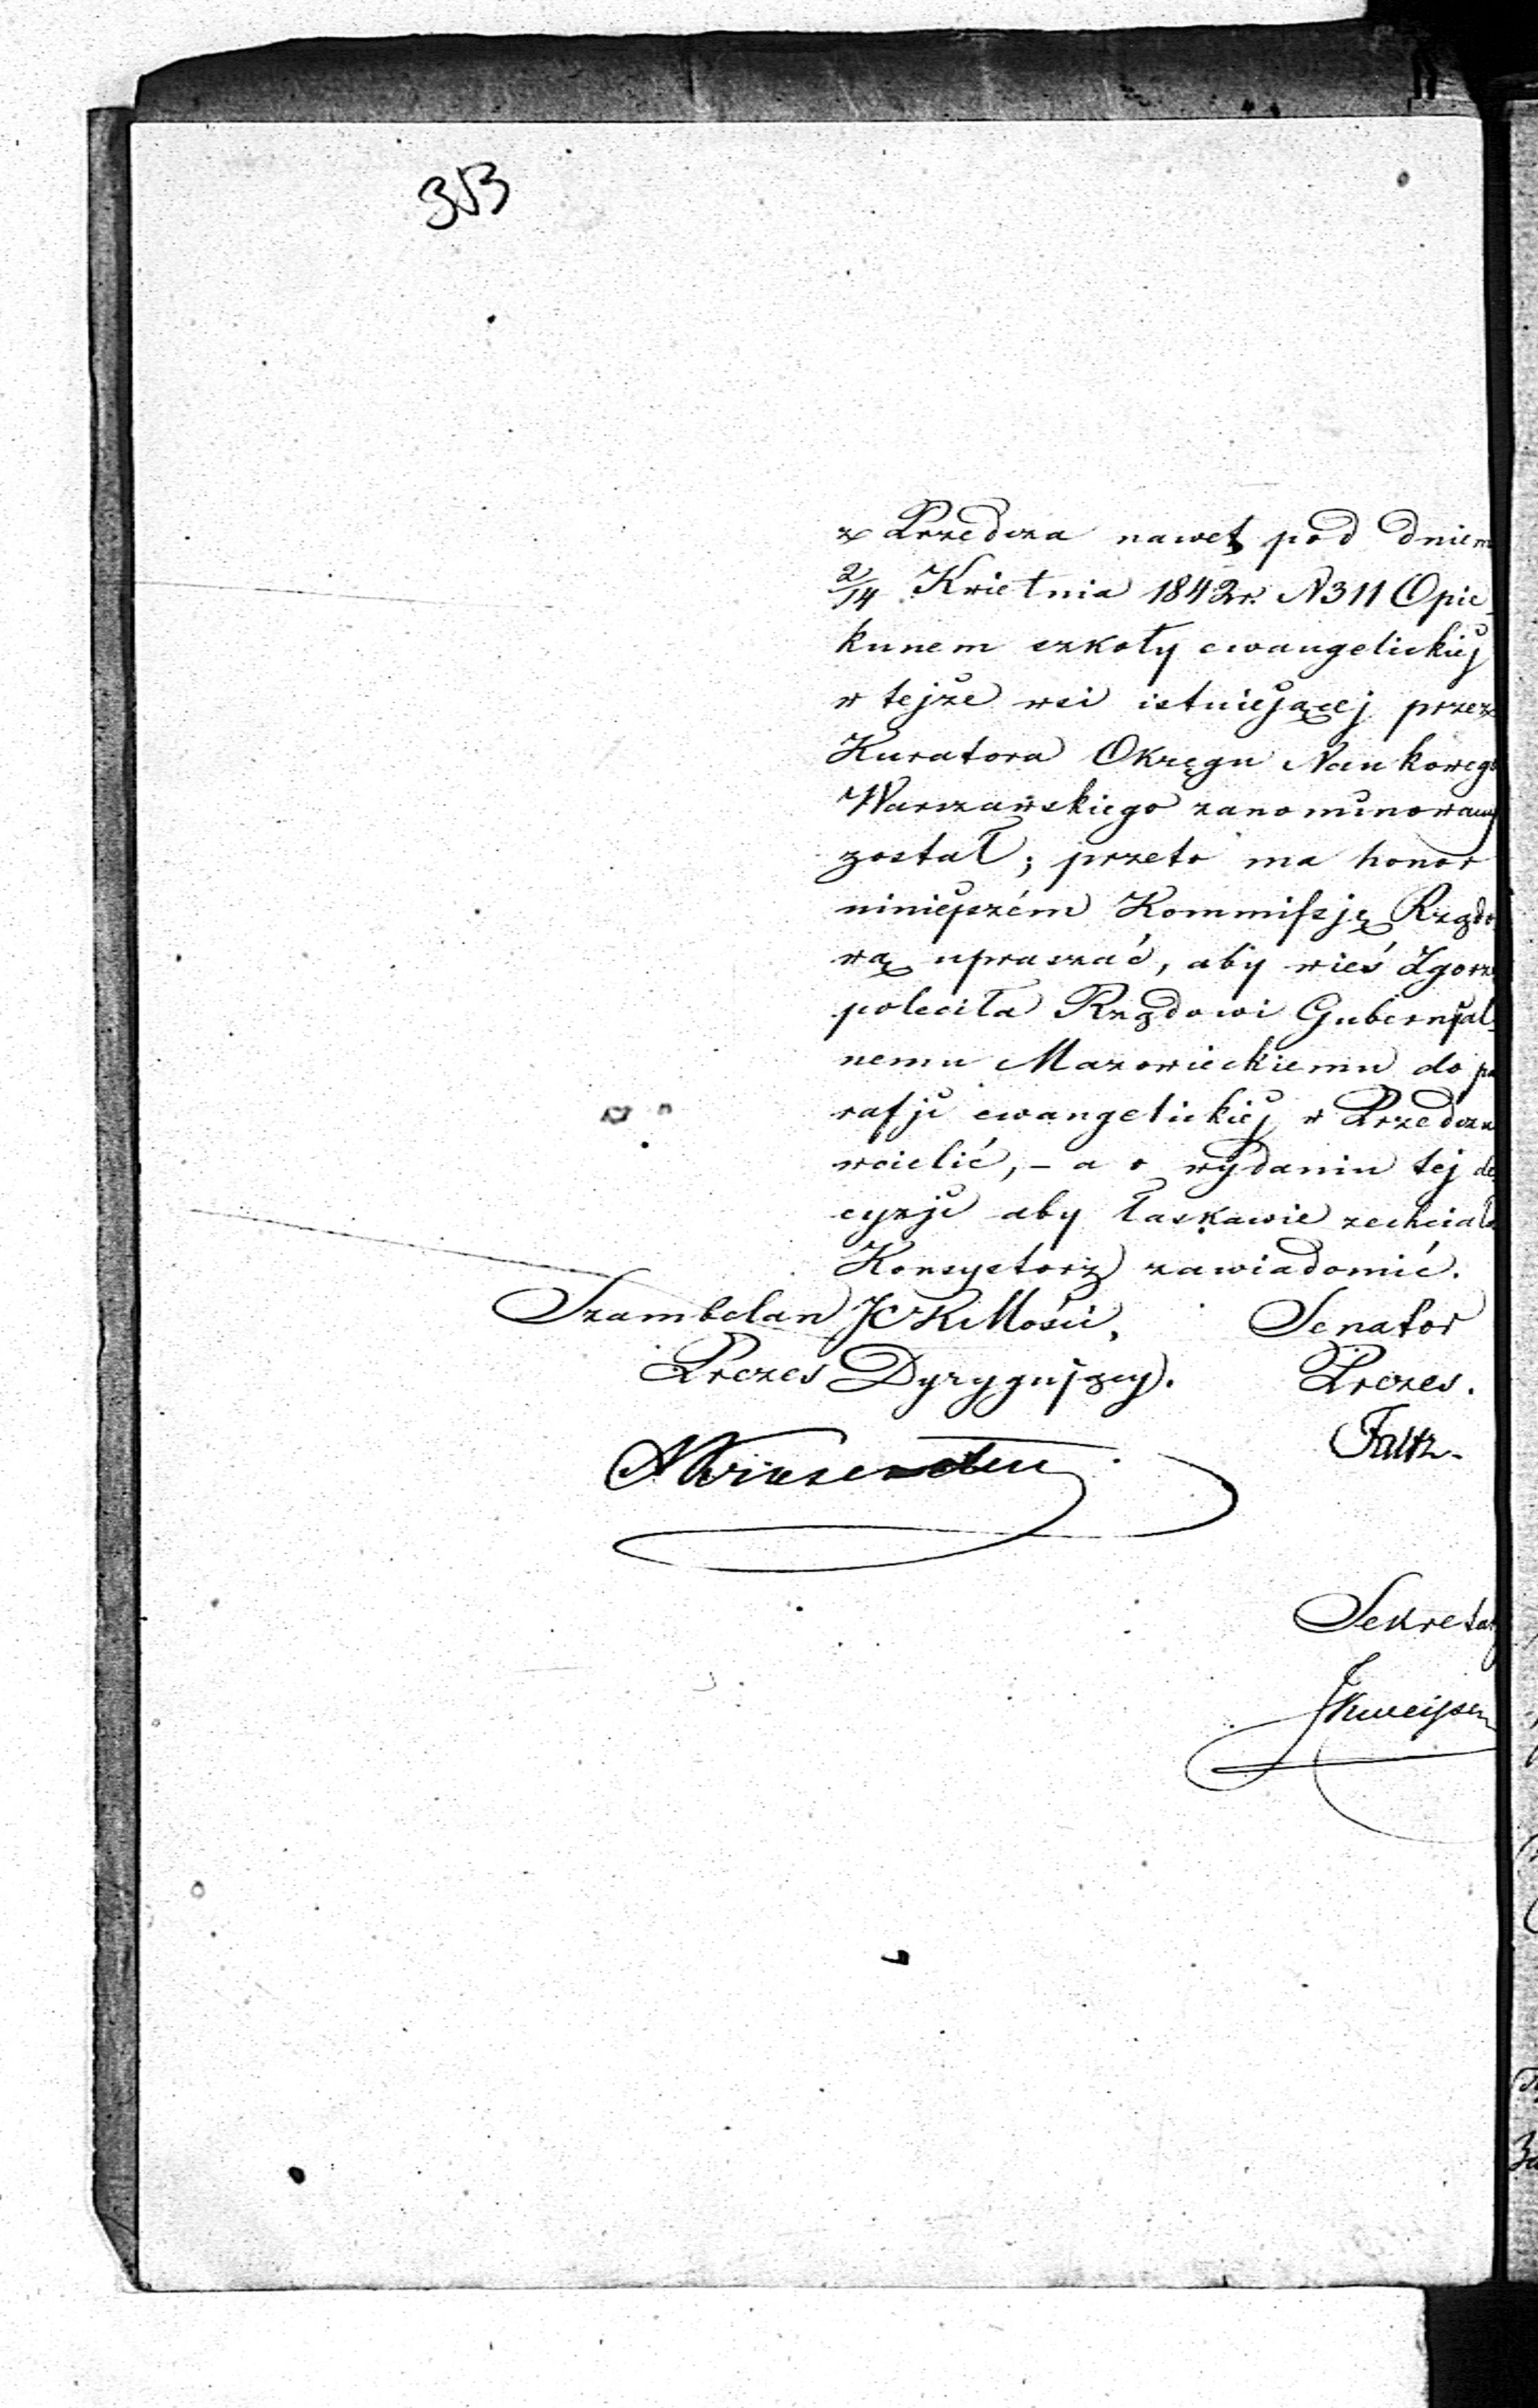 313
z Przedcza nawet pod dniem
2/14 Kwietnia 1842 r. N 311 Opie-
kunem szkoły ewangelickiej
w tejże wsi istniejącej przez
Kuratora Okręgu Naukowego
Warszawskiego zanominowany
został; przeto ma honor
niniejszém Kommissję Rządo
wą upraszać, aby wieś Zgorze
poleciła Rządowi Gubernjal-
nemu Mazowieckiemu do pa
rafji ewangelickiej w Przedczu
wcielić, – a o wydaniu tej de
cyzji aby łaskawie zechciała
Konsystorz zawiadomić.
Szambelan JCK Mości, Senator
Prezes Dyrygujący. Prezes.
Faltz.
Sekretarz